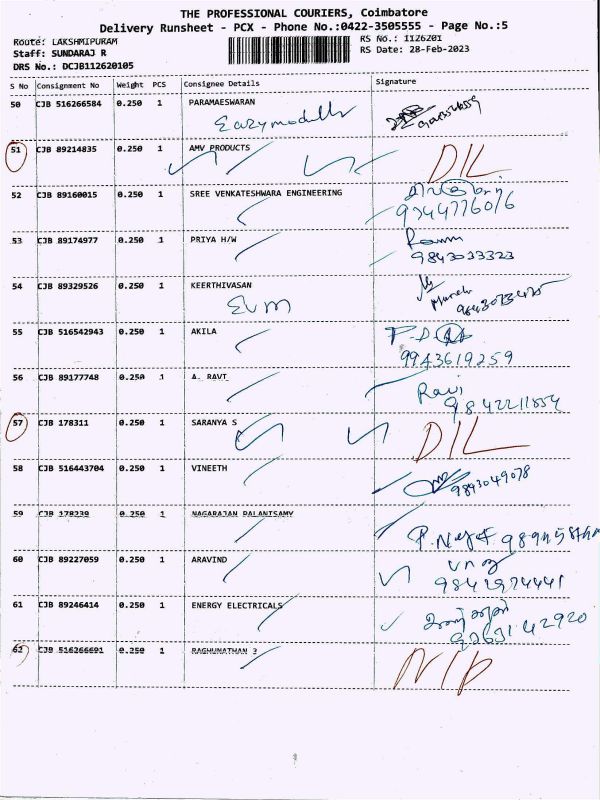 THE PROFESSIONAL COURIERS, Coimbatore
Delivery Runsheet - PCX - Phone No.:0422-3505555 - Page No.:5
Route: LAKSHMIPURAM
RS No.: 1126201
Staff: SUNDARAJ R
RS Date: 28-Feb-2023
DRS No.: DCJB112620105
S No Consignment No Weight PCS Consignee Details Signature
50 CJB 516266584 0.250 1 PARAMAESWARAN
51 CJB 89214835 0.250 1 AMV PRODUCTS DIL
52 CJB 89160015 0.250 1 SREE VENKATESHWARA ENGINEERING
53 CJB 89174977 0.250 1 PRIYA H/W
9843033323
54 CJB 89329526 0.250 1 KEERTHIVASAN
55 CJB 516542943 0.250 1 AKILA
9943619259
56 CJB 89177748 0.250 1 A. RAVI Ravi
57 CJB 178311 0.250 1 SARANYA S DIL
58 CJB 516443704 0.250 1 VINEETH
9893049078
59 CJB 178239 0.250 1 NAGARAJAN PALANISAMY
60 CJB 89227059 0.250 1 ARAVIND
61 CJB 89246414 0.250 1 ENERGY ELECTRICALS
62 CJB 516266691 0.250 1 RAGHUNATHAN 3